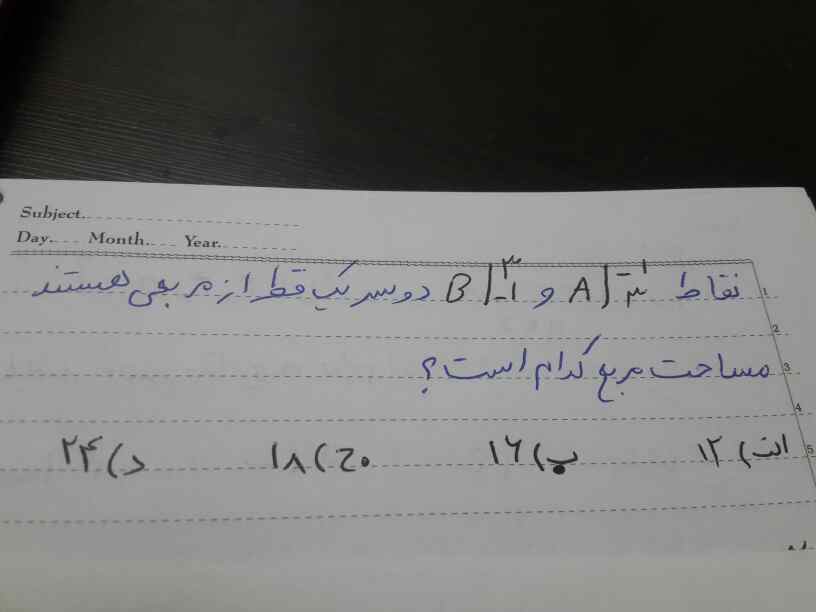 Subject.
Day. Month. Year.
نقاط A|۱ ۳- و B|۳ ۱- دو سر یک قطر از مربعی هستند
مساحت مربع کدام است؟
الف) ۱۲ ب) ۱۶ ج) ۱۸ د) ۲۴
1
2
3
4
5